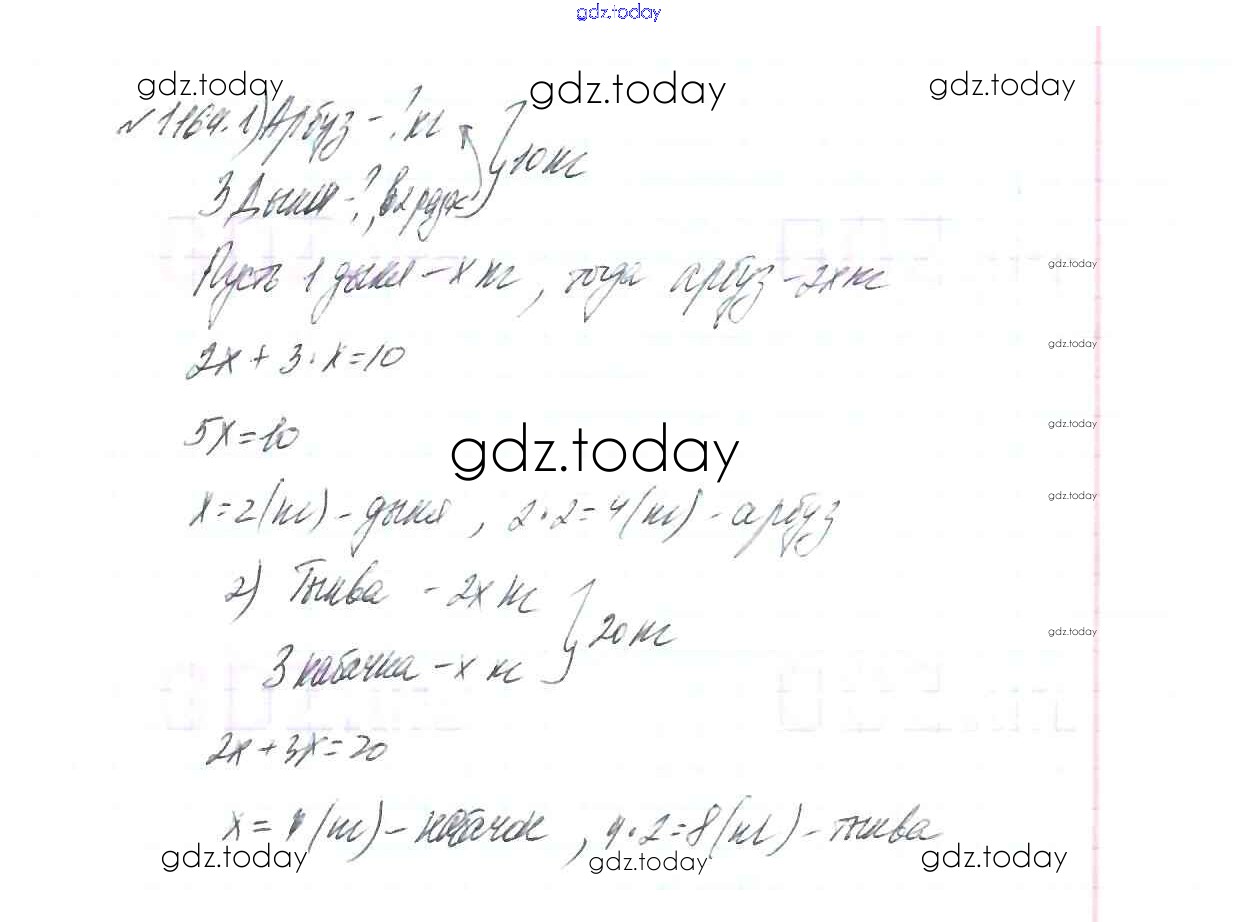 gdz.today
gdz.today gdz.today gdz.today
№ 1164. 1) Арбуз - ? кг
3 Дыни - ?, в 2 р } 10 кг
Пусть 1 дыня - х кг, тогда арбуз - 2х кг
gdz.today
2х + 3 · х = 10
gdz.today
5х = 10
gdz.today
gdz.today
х = 2 (кг) - дыня, 2 · 2 = 4 (кг) - арбуз
gdz.today
2) Тыква - 2х кг
3 кабачка - х кг } 20 кг
gdz.today
2х + 3х = 20
х = 4 (кг) - кабачок, 4 · 2 = 8 (кг) - тыква
gdz.today gdz.today gdz.today